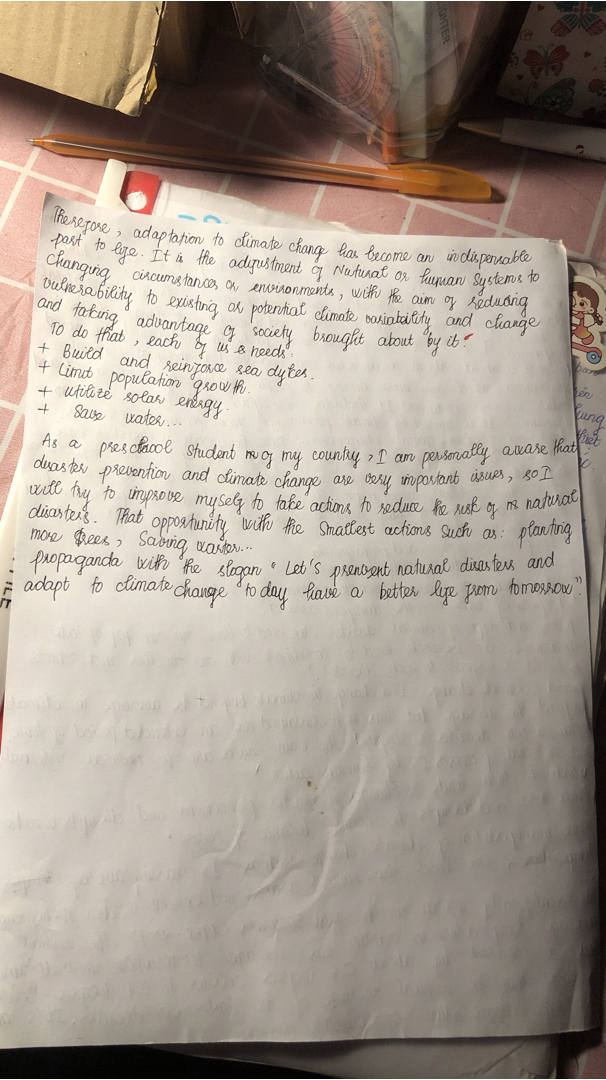 GHTER
Therefore, adaptation to climate change has become an indispensable
past to life. It is the adjustment of Natural or human systems to
changing circumstances or environments, with the aim of reducing
vulnerability to existing or potential climate variability and change
and taking advantage of society brought about by it.
To do that, each of us needs:
+ Build and reinforce sea dytes.
+ Limit population growth.
+ utilize solar energy.
+ Save water...
As a preschool student of my country, I am personally aware that
disaster prevention and climate change are very important issues, so I
will try to improve myself to take actions to reduce the risk of natural
disasters. That opportunity with the smallest actions such as: planting
more trees, Saving waster...
propaganda with the slogan "Let's prenvent natural disasters and
adapt to climate change to day have a better life from tomorrow".